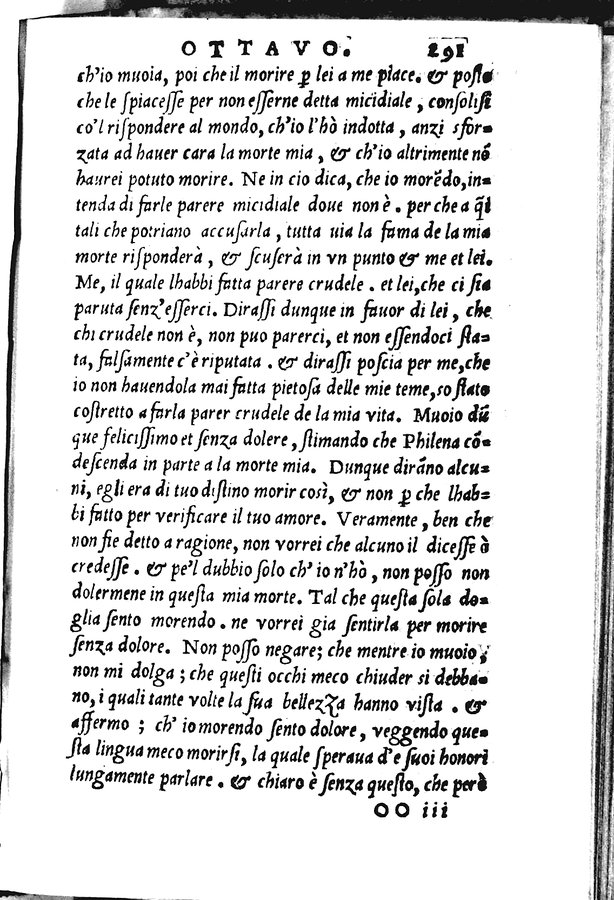 OTTAVO. 291
ch'io muoia, poi che il morire ꝑ lei a me piace. & posto
che le ſpiaceſſe per non eſſerne detta micidiale, conſoliſi
co'l riſpondere al mondo, ch'io l'hò indotta, anzi sfor-
zata ad hauer cara la morte mia, & ch'io altrimente nō
haurei potuto morire. Ne in cio dica, che io morēdo, in-
tenda di farle parere micidiale doue non è. per che a q̄i
tali che potriano accuſarla, tutta uia la fama de la mia
morte riſponderà, & ſcuſerà in vn punto & me et lei.
Me, il quale lhabbi fatta parere crudele. et lei, che ci ſia
paruta ſenz'eſſerci. Diraſſi dunque in fauor di lei, che
chi crudele non è, non puo parerci, et non eſſendoci ſta-
ta, falſamente c'è riputata. & diraſſi poſcia per me, che
io non hauendola mai fatta pietoſa delle mie teme, so ſtato
coſtretto a farla parer crudele de la mia vita. Muoio dū
que feliciſſimo et ſenza dolere, ſtimando che Philena cō-
deſcenda in parte a la morte mia. Dunque dirāno alcu-
ni, egli era di tuo diſtino morir così, & non ꝑ che lhab-
bi fatto per verificare il tuo amore. Veramente, ben che
non ſie detto a ragione, non vorrei che alcuno il diceſſe ò
credeſſe. & pe'l dubbio ſolo ch'io n'hò, non poſſo non
dolermene in queſta mia morte. Tal che queſta ſola do-
glia ſento morendo. ne vorrei gia ſentirla per morire
ſenza dolore. Non poſſo negare; che mentre io muoio,
non mi dolga; che queſti occhi meco chiuder si debba-
no, i quali tante volte la ſua bellezza hanno viſta. &
affermo; ch'io morendo ſento dolore, veggendo que-
ſta lingua meco morirſi, la quale ſperaua d'e ſuoi honori
lungamente parlare. & chiaro è ſenza queſto, che però
OO iii